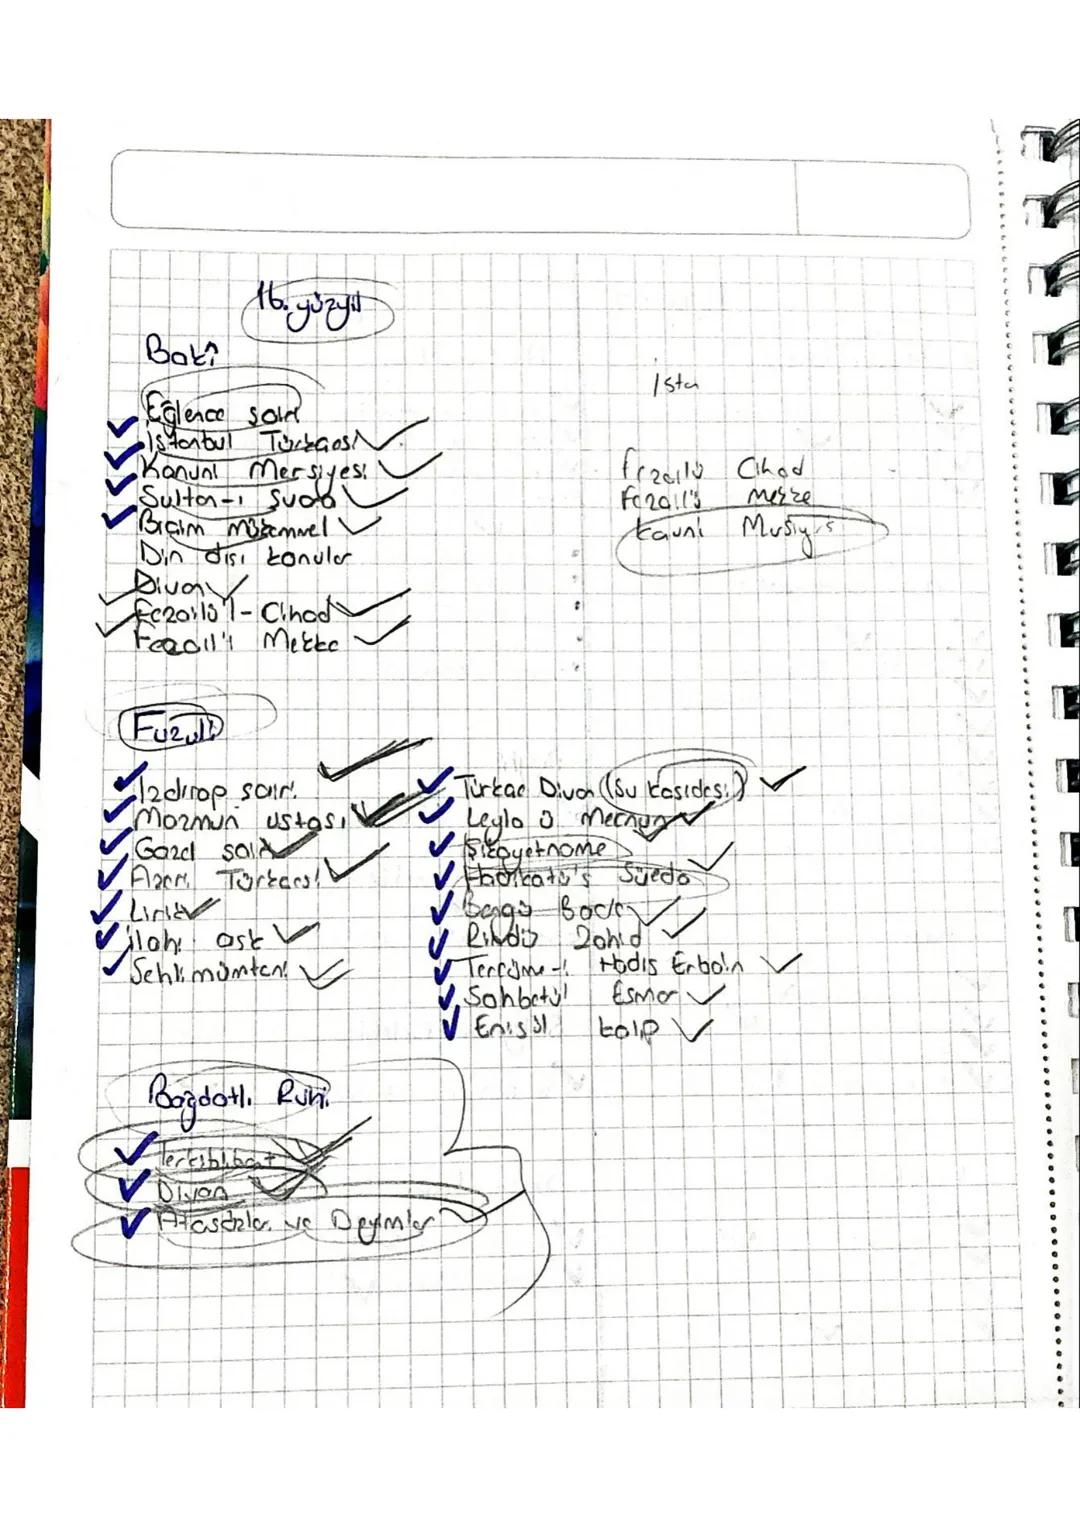 16. yüzyıl
Bakî
Eğlence şairi
İstanbul Türkçesi
Kanuni Mersiyesi
Sultan-ı Şuara
Biçim mükemmel
Din dışı konular
Divan
Fezailü'l-Cihad
Fezail'i Mekke
İstan
Fezailü Cihad
Fezail'i Mekke
Fuzuli
Izdırap şairi
Mazmun ustası
Gazel şairi
Azeri Türkçesi
Lirik
ilahi aşk
Sehli mümteni
Türkçe Divan (Su kasidesi)
Leyla ü Mecnun
Şikayetname
Hadikatü's Süeda
Bengü Bade
Rindü Zahid
Tercüme-i Hadis Erbain
Sohbetül Esmar
Enisül kalp
Bağdatlı Ruhi
Terkibibent
Divan
Atasözleri ve Deyimler